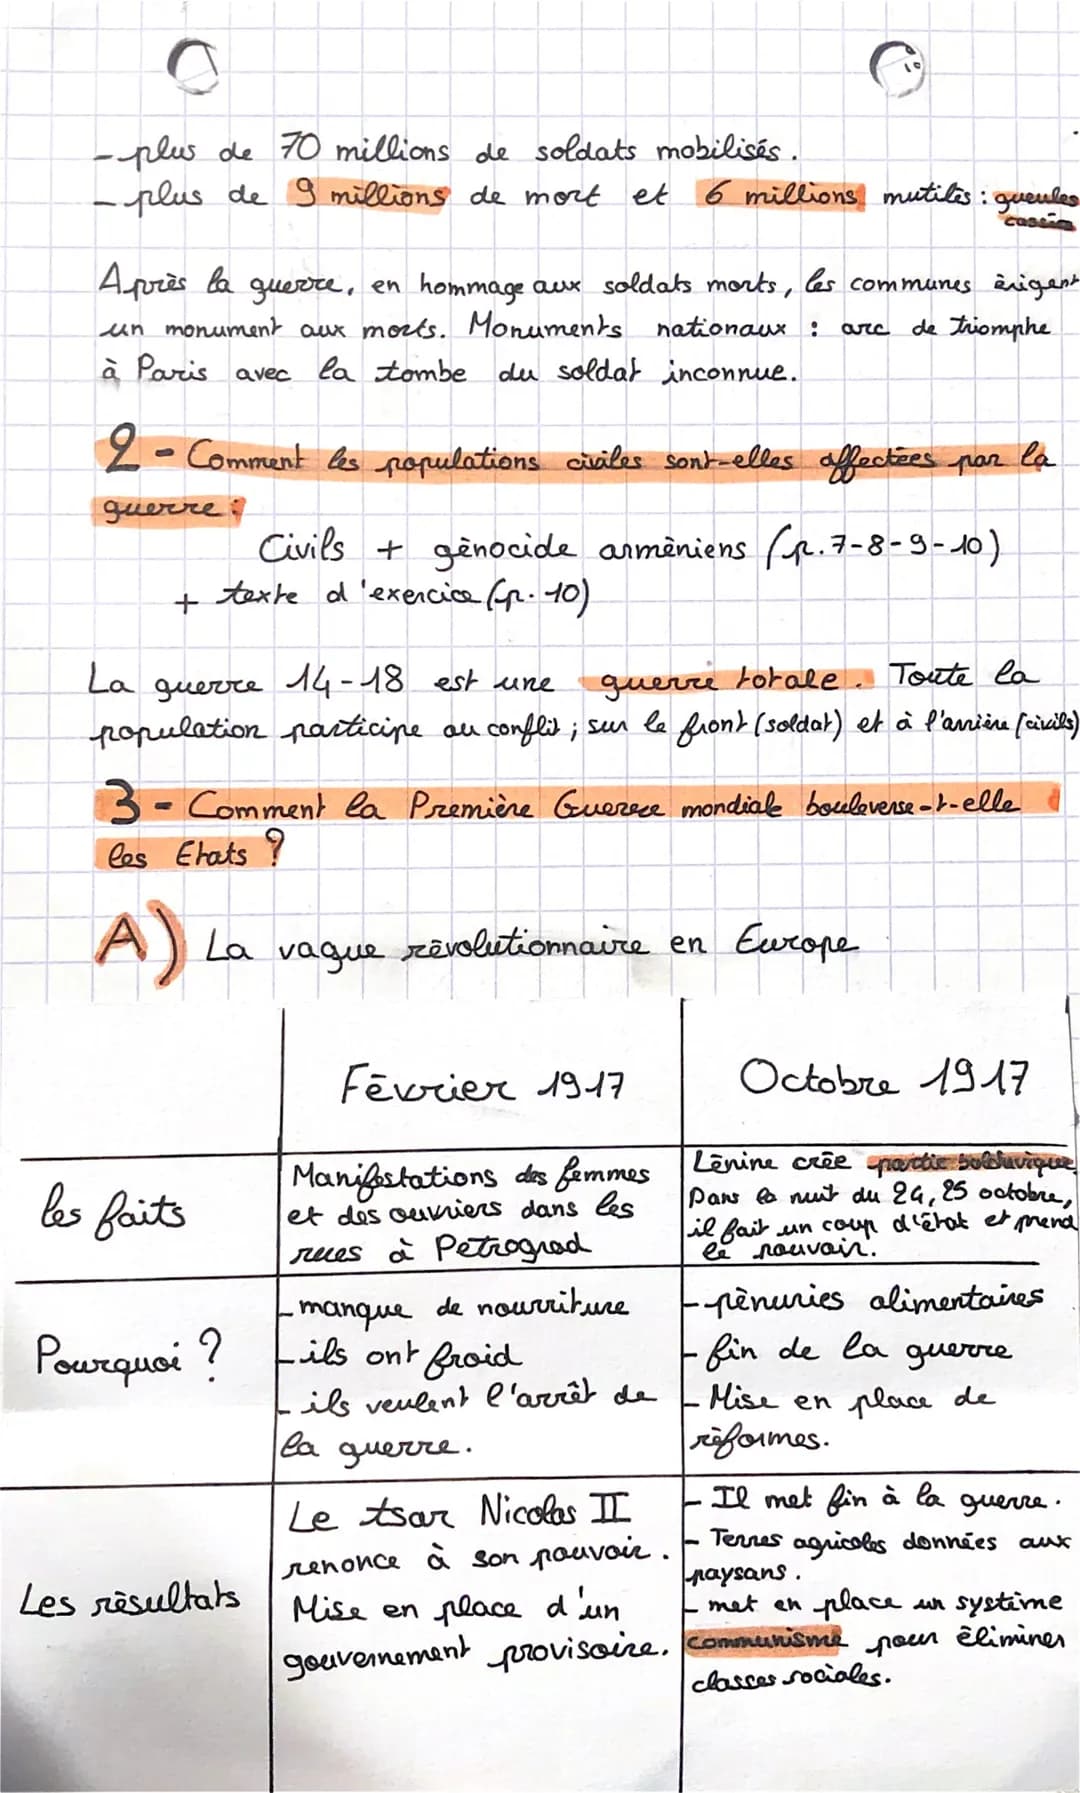 - plus de 70 millions de soldats mobilisés.
- plus de 9 millions de mort et 6 millions mutilés : gueules
cassées
Après la guerre, en hommage aux soldats morts, les communes èrigent
un monument aux morts. Monuments nationaux : arc de triomphe
à Paris avec la tombe du soldat inconnue.
2 - Comment les populations civiles sont-elles affectées par la
guerre :
Civils + gènocide armèniens (p.7-8-9-10)
+ texte d'exercice (p.10)
La guerre 14-18 est une guerre totale. Toute la
population participe au conflit ; sur le front (soldat) et à l'arrière (civils)
3 - Comment la Première Guerre mondiale bouleverse-t-elle
les Etats ?
A) La vague rēvolutionnaire en Europe
Fēvrier 1917
Octobre 1917
les faits
Manifestations des femmes
et des ouvriers dans les
rues à Petrograd
Lēnine crēe partie bolchuvique
Dans la nuit du 24, 25 octobre,
il fait un coup d'état et prend
le pouvoir.
Pourquoi ?
- manque de nourriture
- ils ont froid
- ils veulent l'arrêt de
la guerre.
- pènuries alimentaires
- fin de la guerre
- Mise en place de
rèformes.
Les rēsultats
Le tsar Nicolas II
renonce à son pouvoir.
Mise en place d'un
gouvernement provisoire.
- Il met fin à la guerre.
- Terres agricoles données aux
paysans.
- met en place un système
communisme pour ēliminer
classes sociales.